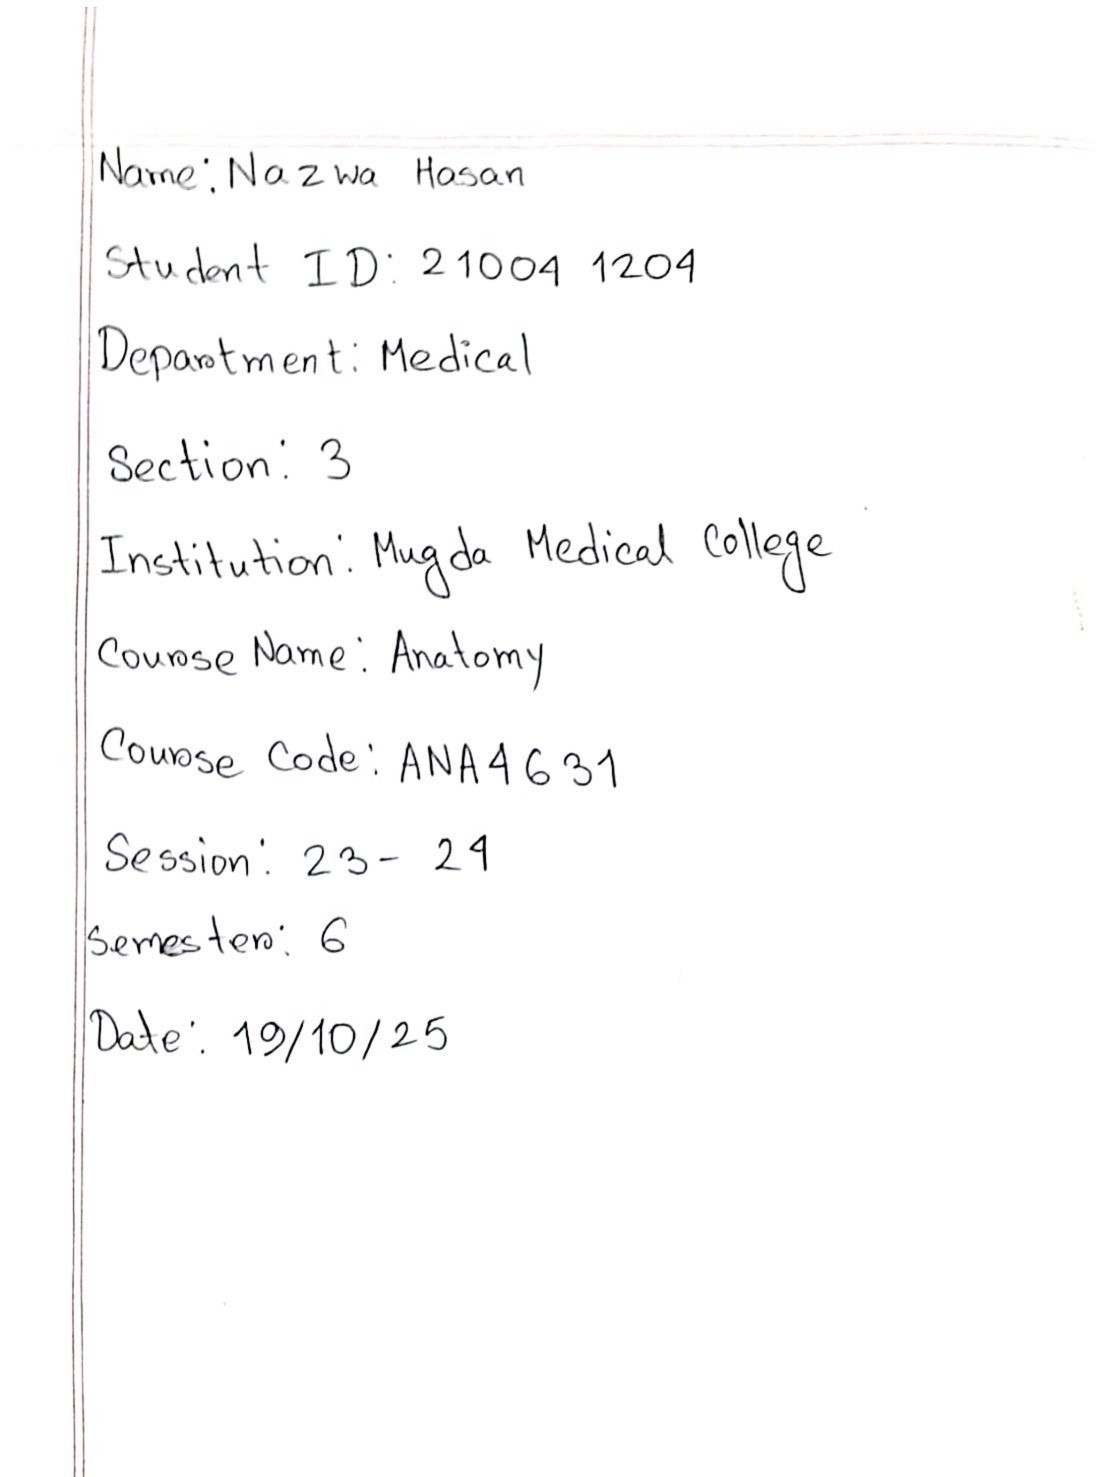 Name: Nazwa Hasan
Student ID: 21004 1204
Department: Medical
Section: 3
Institution: Mugda Medical College
Course Name: Anatomy
Course Code: ANA4631
Session: 23- 24
Semester: 6
Date: 19/10/25